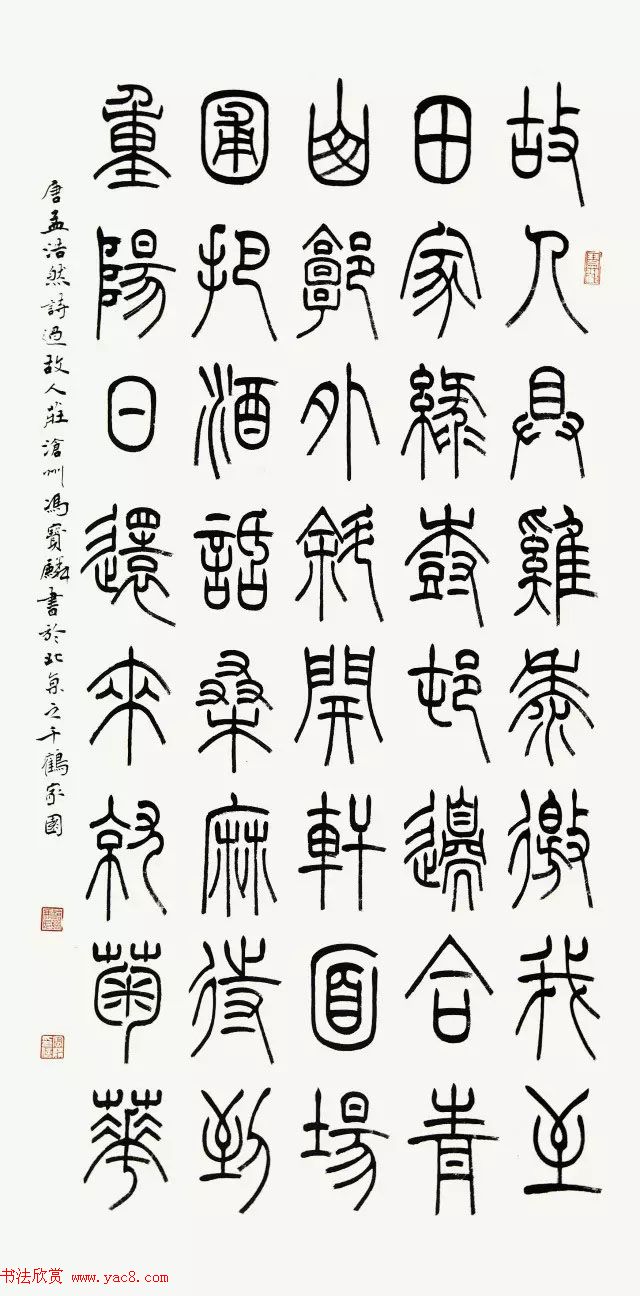 故人具雞黍徼我至
田家綠樹邨邊合青
山郭外斜開軒面場
圃把酒話桑麻待到
重陽日還來就菊華
唐孟浩然詩過故人莊滄州馮寶麟書於北京之千鶴家園
书法欣赏 www.yac8.com